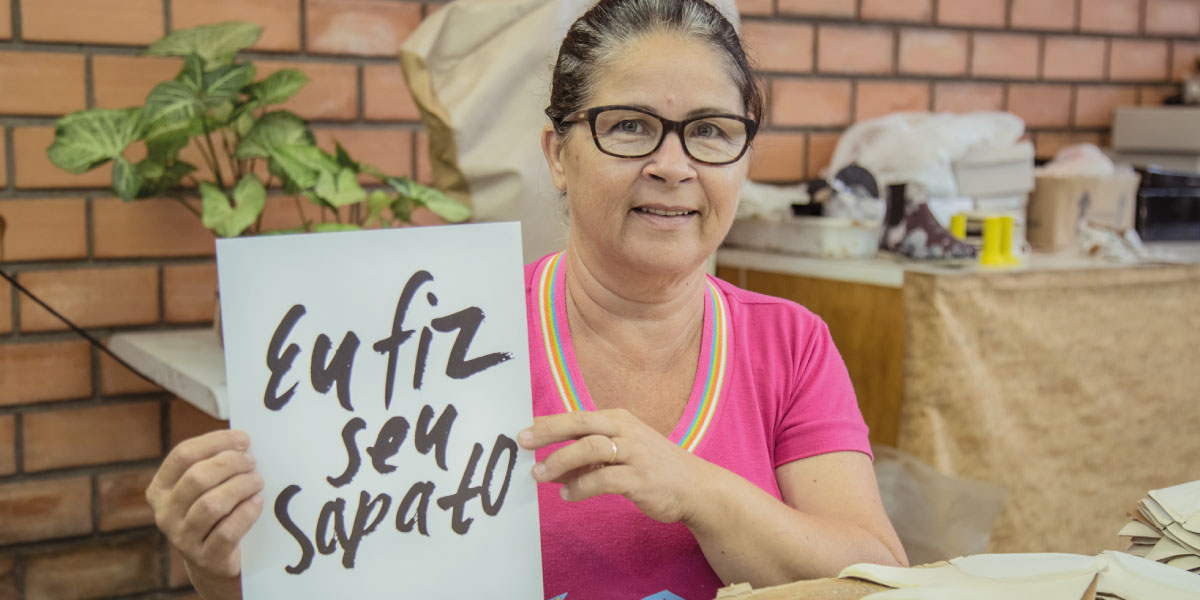 Eu fiz
seu
sapato